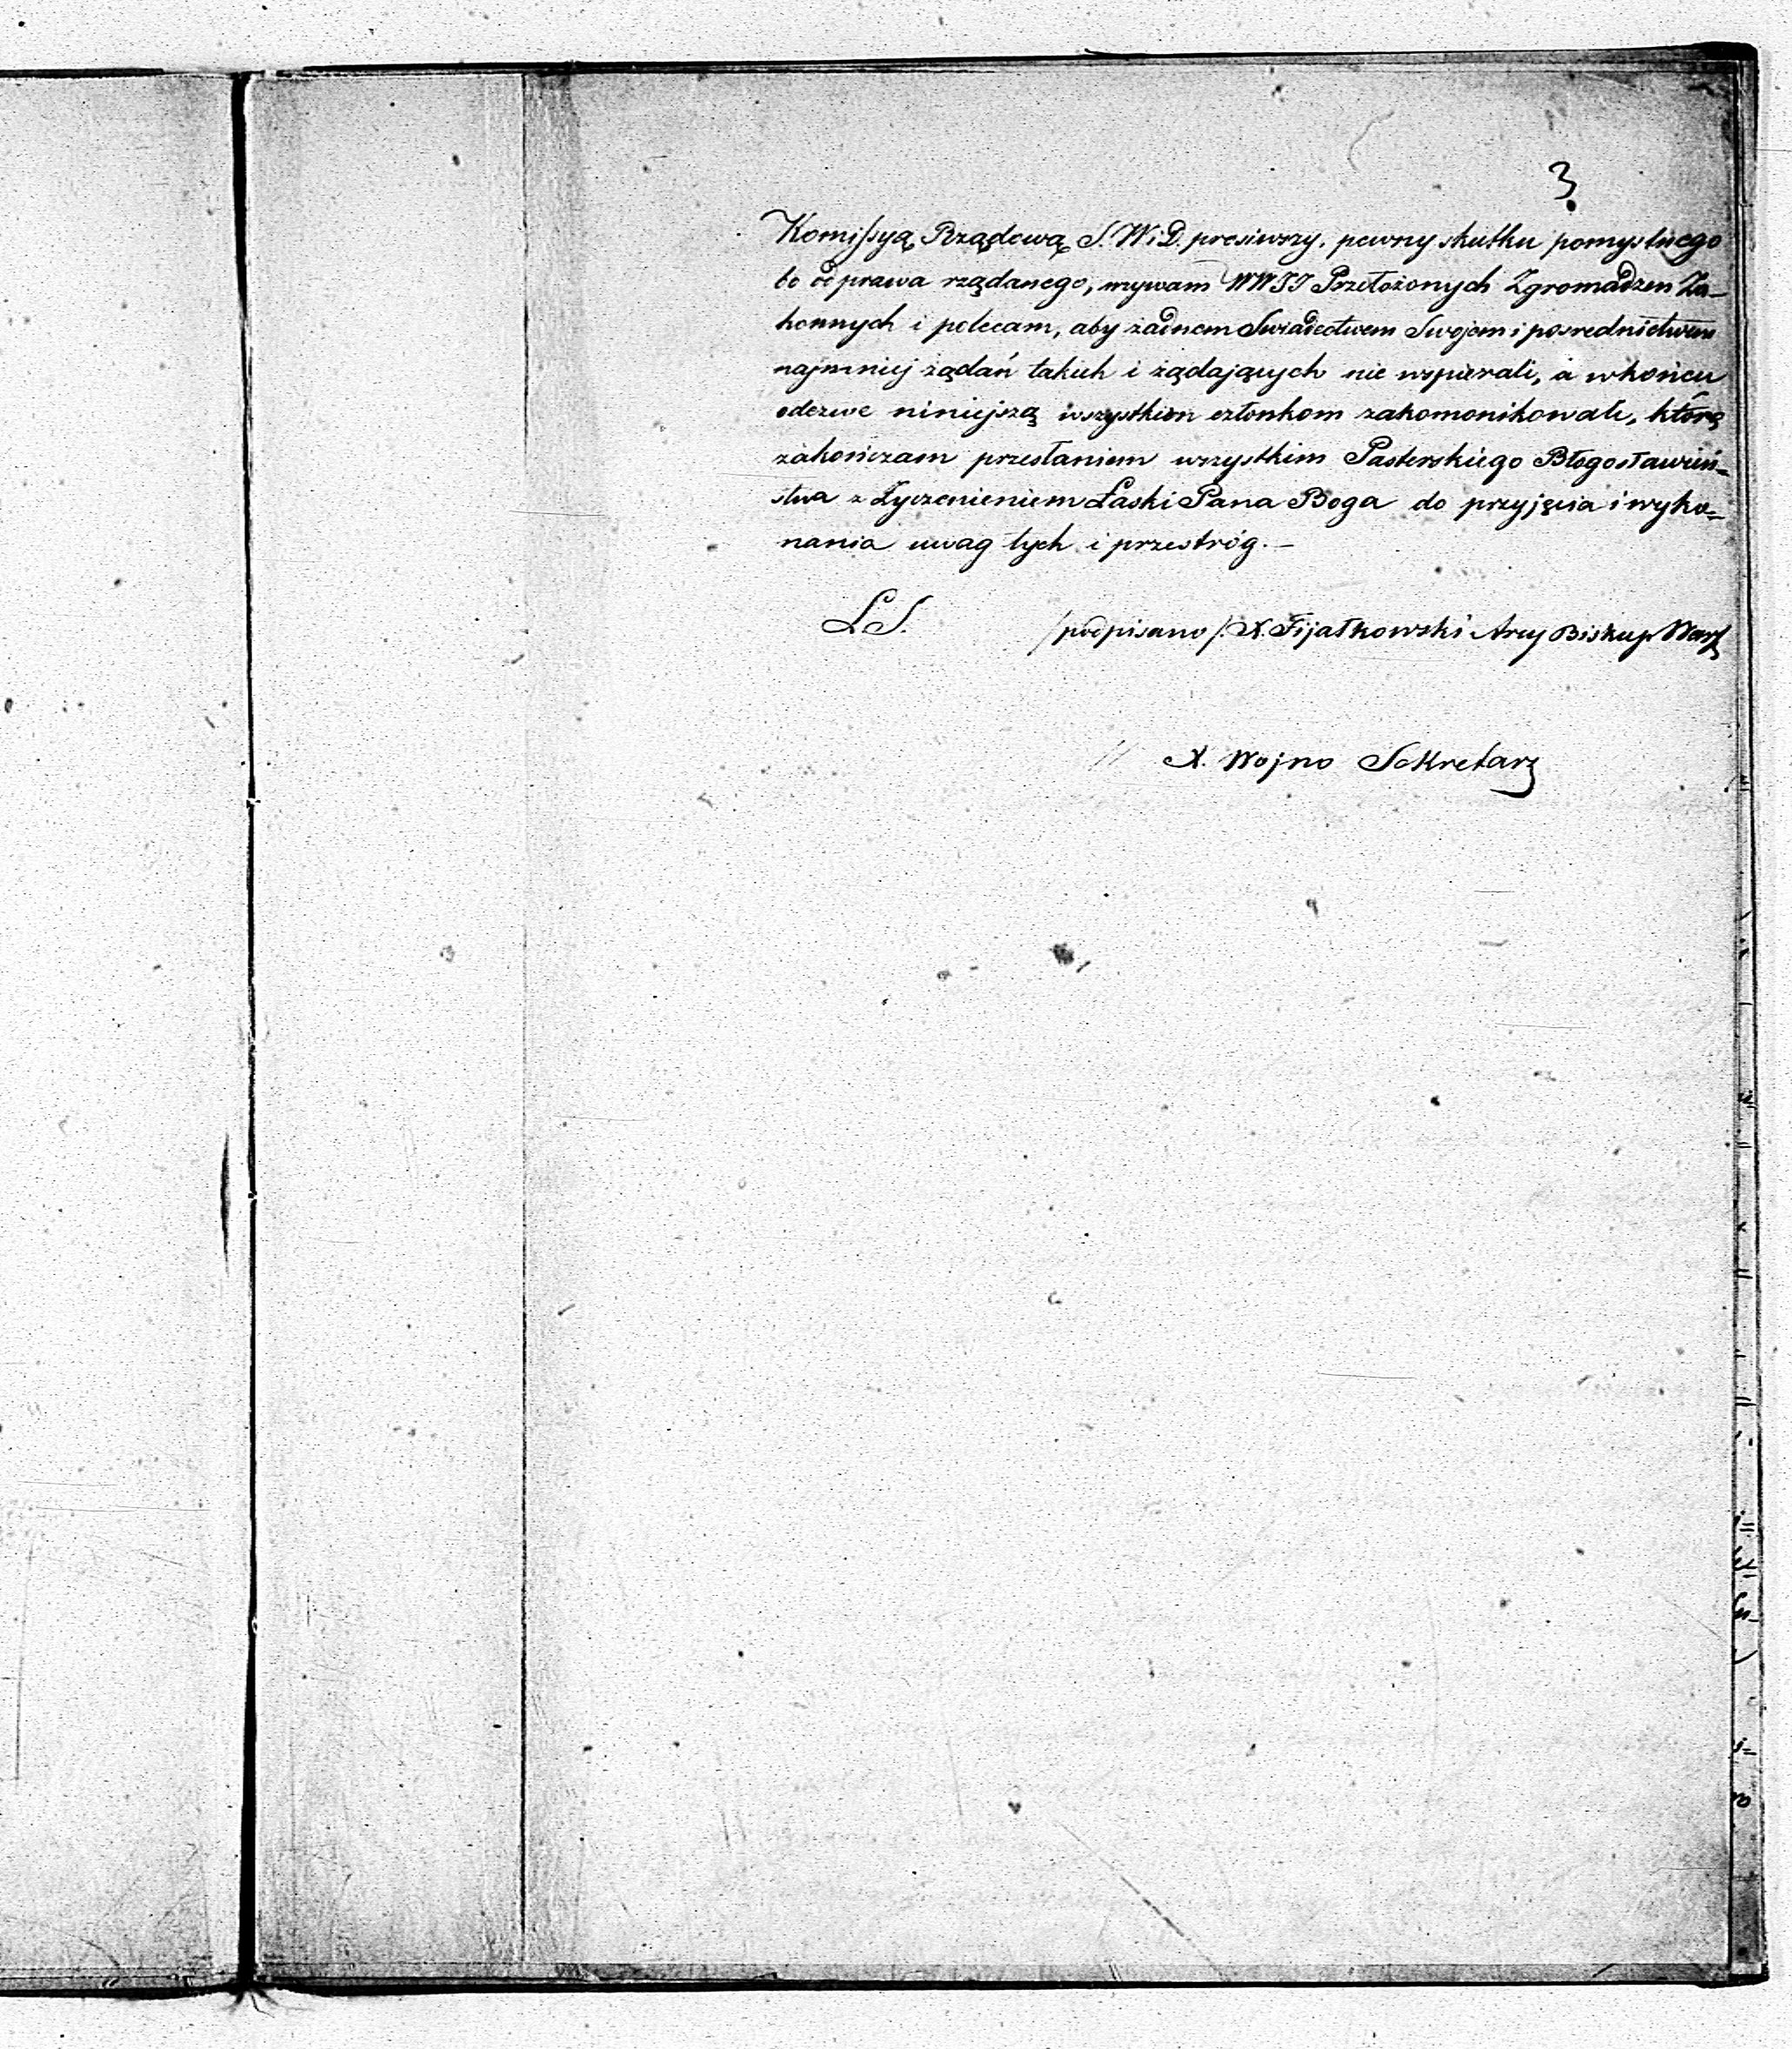 3
Komissyą Rządową S. W i D. prosiwszy, pewny skutku pomyślnego
bo od prawa rządanego, wzywam WWJJ Przełożonych Zgromadzen Za-
konnych i polecam, aby żadnem Swiadectwem Swojem i posrednictwem
najmniej żądań takich i żądających nie wspierali, a wkońcu
odezwe niniejszą wszystkim członkom zakomonikowali, którą
zakończam przesłaniem wszystkim Pasterskiego Błogosławień=
stwa z Zyczenieniem Łaski Pana Boga do przyjęcia i wyko=
nania uwag tych i przestróg. –
L.S. /podpisano/ X. Fijałkowski Arcy Biskup Warsz
X. Wojno Sekretarz